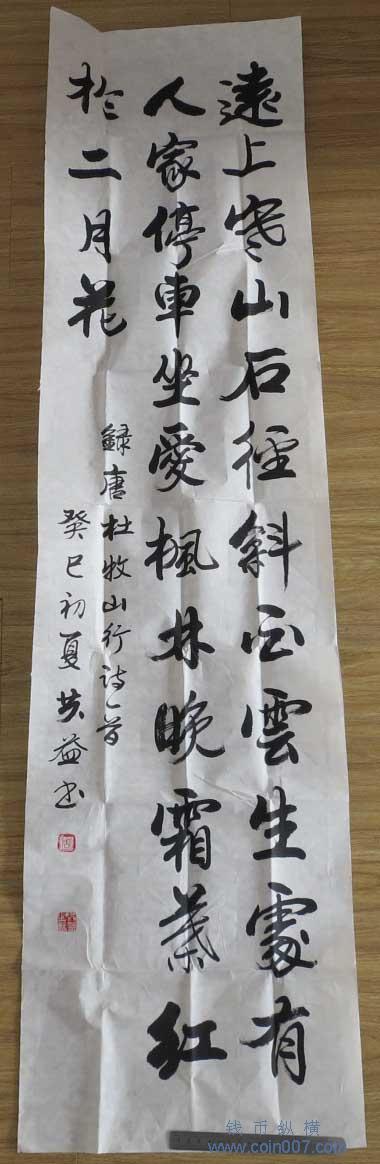 遠上寒山石徑斜白雲生處有
人家停車坐愛楓林晚霜葉紅
於二月花
録唐杜牧山行詩一首
癸巳初夏共益书
钱币纵横
www.coin007.com